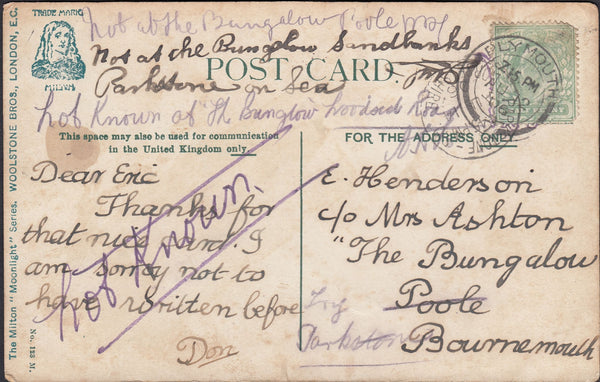 TRADE MARK
MILTON
The Milton "Moonlight" Series. WOOLSTONE BROS., LONDON, E.C.
No. 123 M.
Not at the Bungalow Poole
Not at the Bungalow Sandbanks
Parkstone on Sea
POST CARD.
PLYMOUTH
7.15 PM
Not Known at The Bunglow Woodsid Road
This space may also be used for communication
in the United Kingdom only.
FOR THE ADDRESS ONLY.
Dear Eric
Thanks for
that nice card. I
am sorry not to
have written before
Don
Not Known.
E. Henderson
c/o Mrs Ashton
"The Bungalow
Poole
Try
Parkstone
Bournemouth